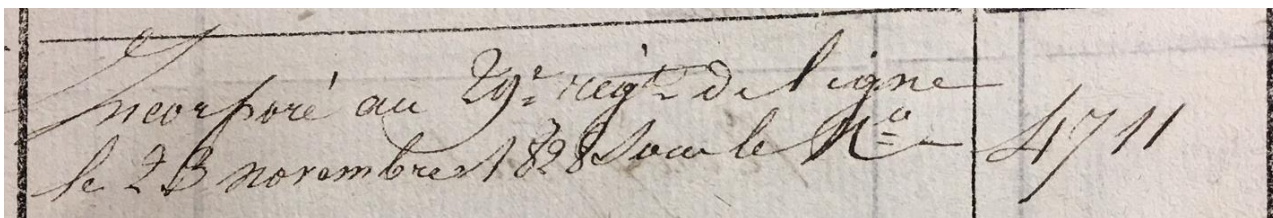 Incorporé au 29e regt de ligne
le 23 novembre 1828 sous le No 4711